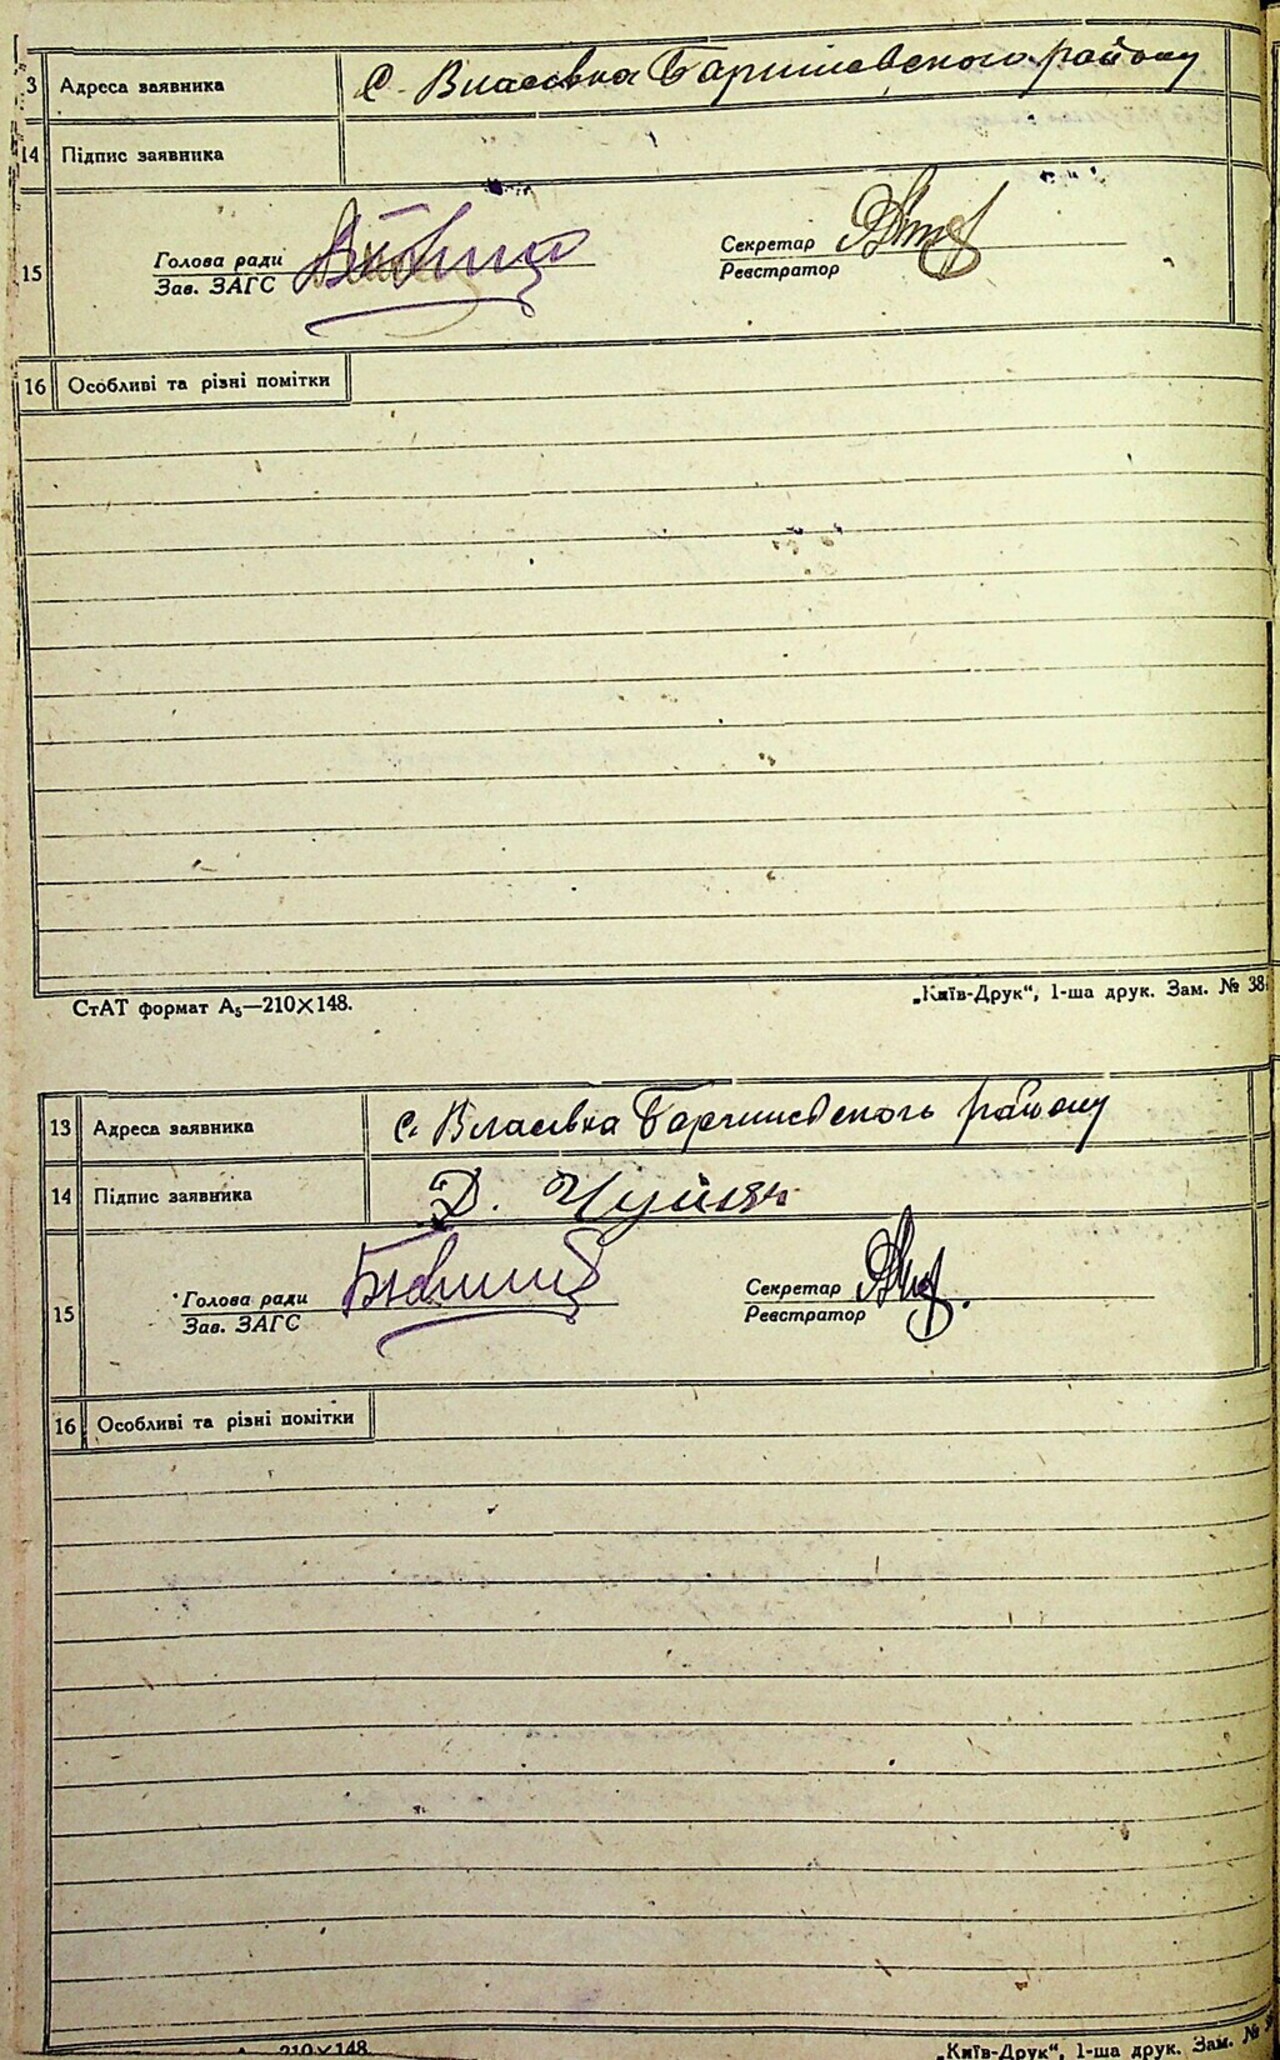 3 Адреса заявника с. Власівка Баришівського району
14 Підпис заявника
15 Голова ради Секретар
Зав. ЗАГС Реєстратор
16 Особливі та різні помітки
СтАТ формат А₅—210×148. „Київ-Друк“, 1-ша друк. Зам. № 38
13 Адреса заявника с. Власівка Баришівського району
14 Підпис заявника Д.
15 Голова ради Секретар
Зав. ЗАГС Реєстратор
16 Особливі та різні помітки
210×148 „Київ-Друк“, 1-ша друк. Зам. №